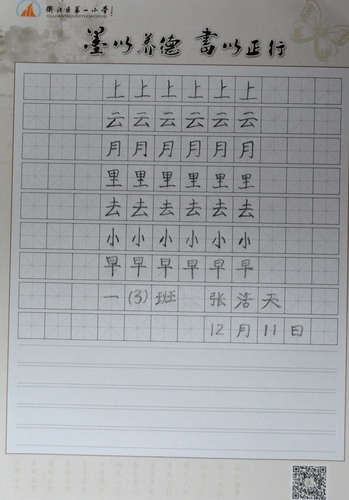 第一小学
墨以养德 书以正行
上上上上上上
云云云云云云
月月月月月月
里里里里里里
去去去去去去
小小小小小小
早早早早早早
一(3)班 张浩天
12月11日